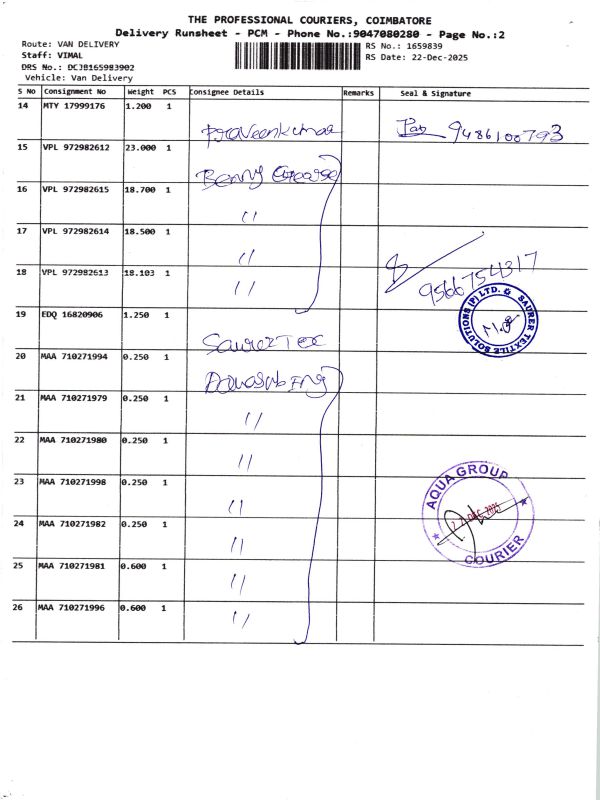 THE PROFESSIONAL COURIERS, COIMBATORE
Delivery Runsheet - PCM - Phone No.:9047080280 - Page No.:2
Route: VAN DELIVERY
RS No.: 1659839
Staff: VIMAL
RS Date: 22-Dec-2025
DRS No.: DCJB165983902
Vehicle: Van Delivery
S No Consignment No Weight PCS Consignee Details Remarks Seal & Signature
14 MTY 17999176 1.200 1
Praveenkumar 9486100793
15 VPL 972982612 23.000 1
Benny George
16 VPL 972982615 18.700 1
"
17 VPL 972982614 18.500 1
"
18 VPL 972982613 18.103 1
" 9566754317
19 EDQ 16820906 1.250 1
SAURER TEXTILE SOLUTIONS (P) LTD.
20 MAA 710271994 0.250 1
21 MAA 710271979 0.250 1
"
22 MAA 710271980 0.250 1
"
23 MAA 710271998 0.250 1
"
24 MAA 710271982 0.250 1
"
AQUA GROUP
DEC 2025
COURIER
25 MAA 710271981 0.600 1
"
26 MAA 710271996 0.600 1
"